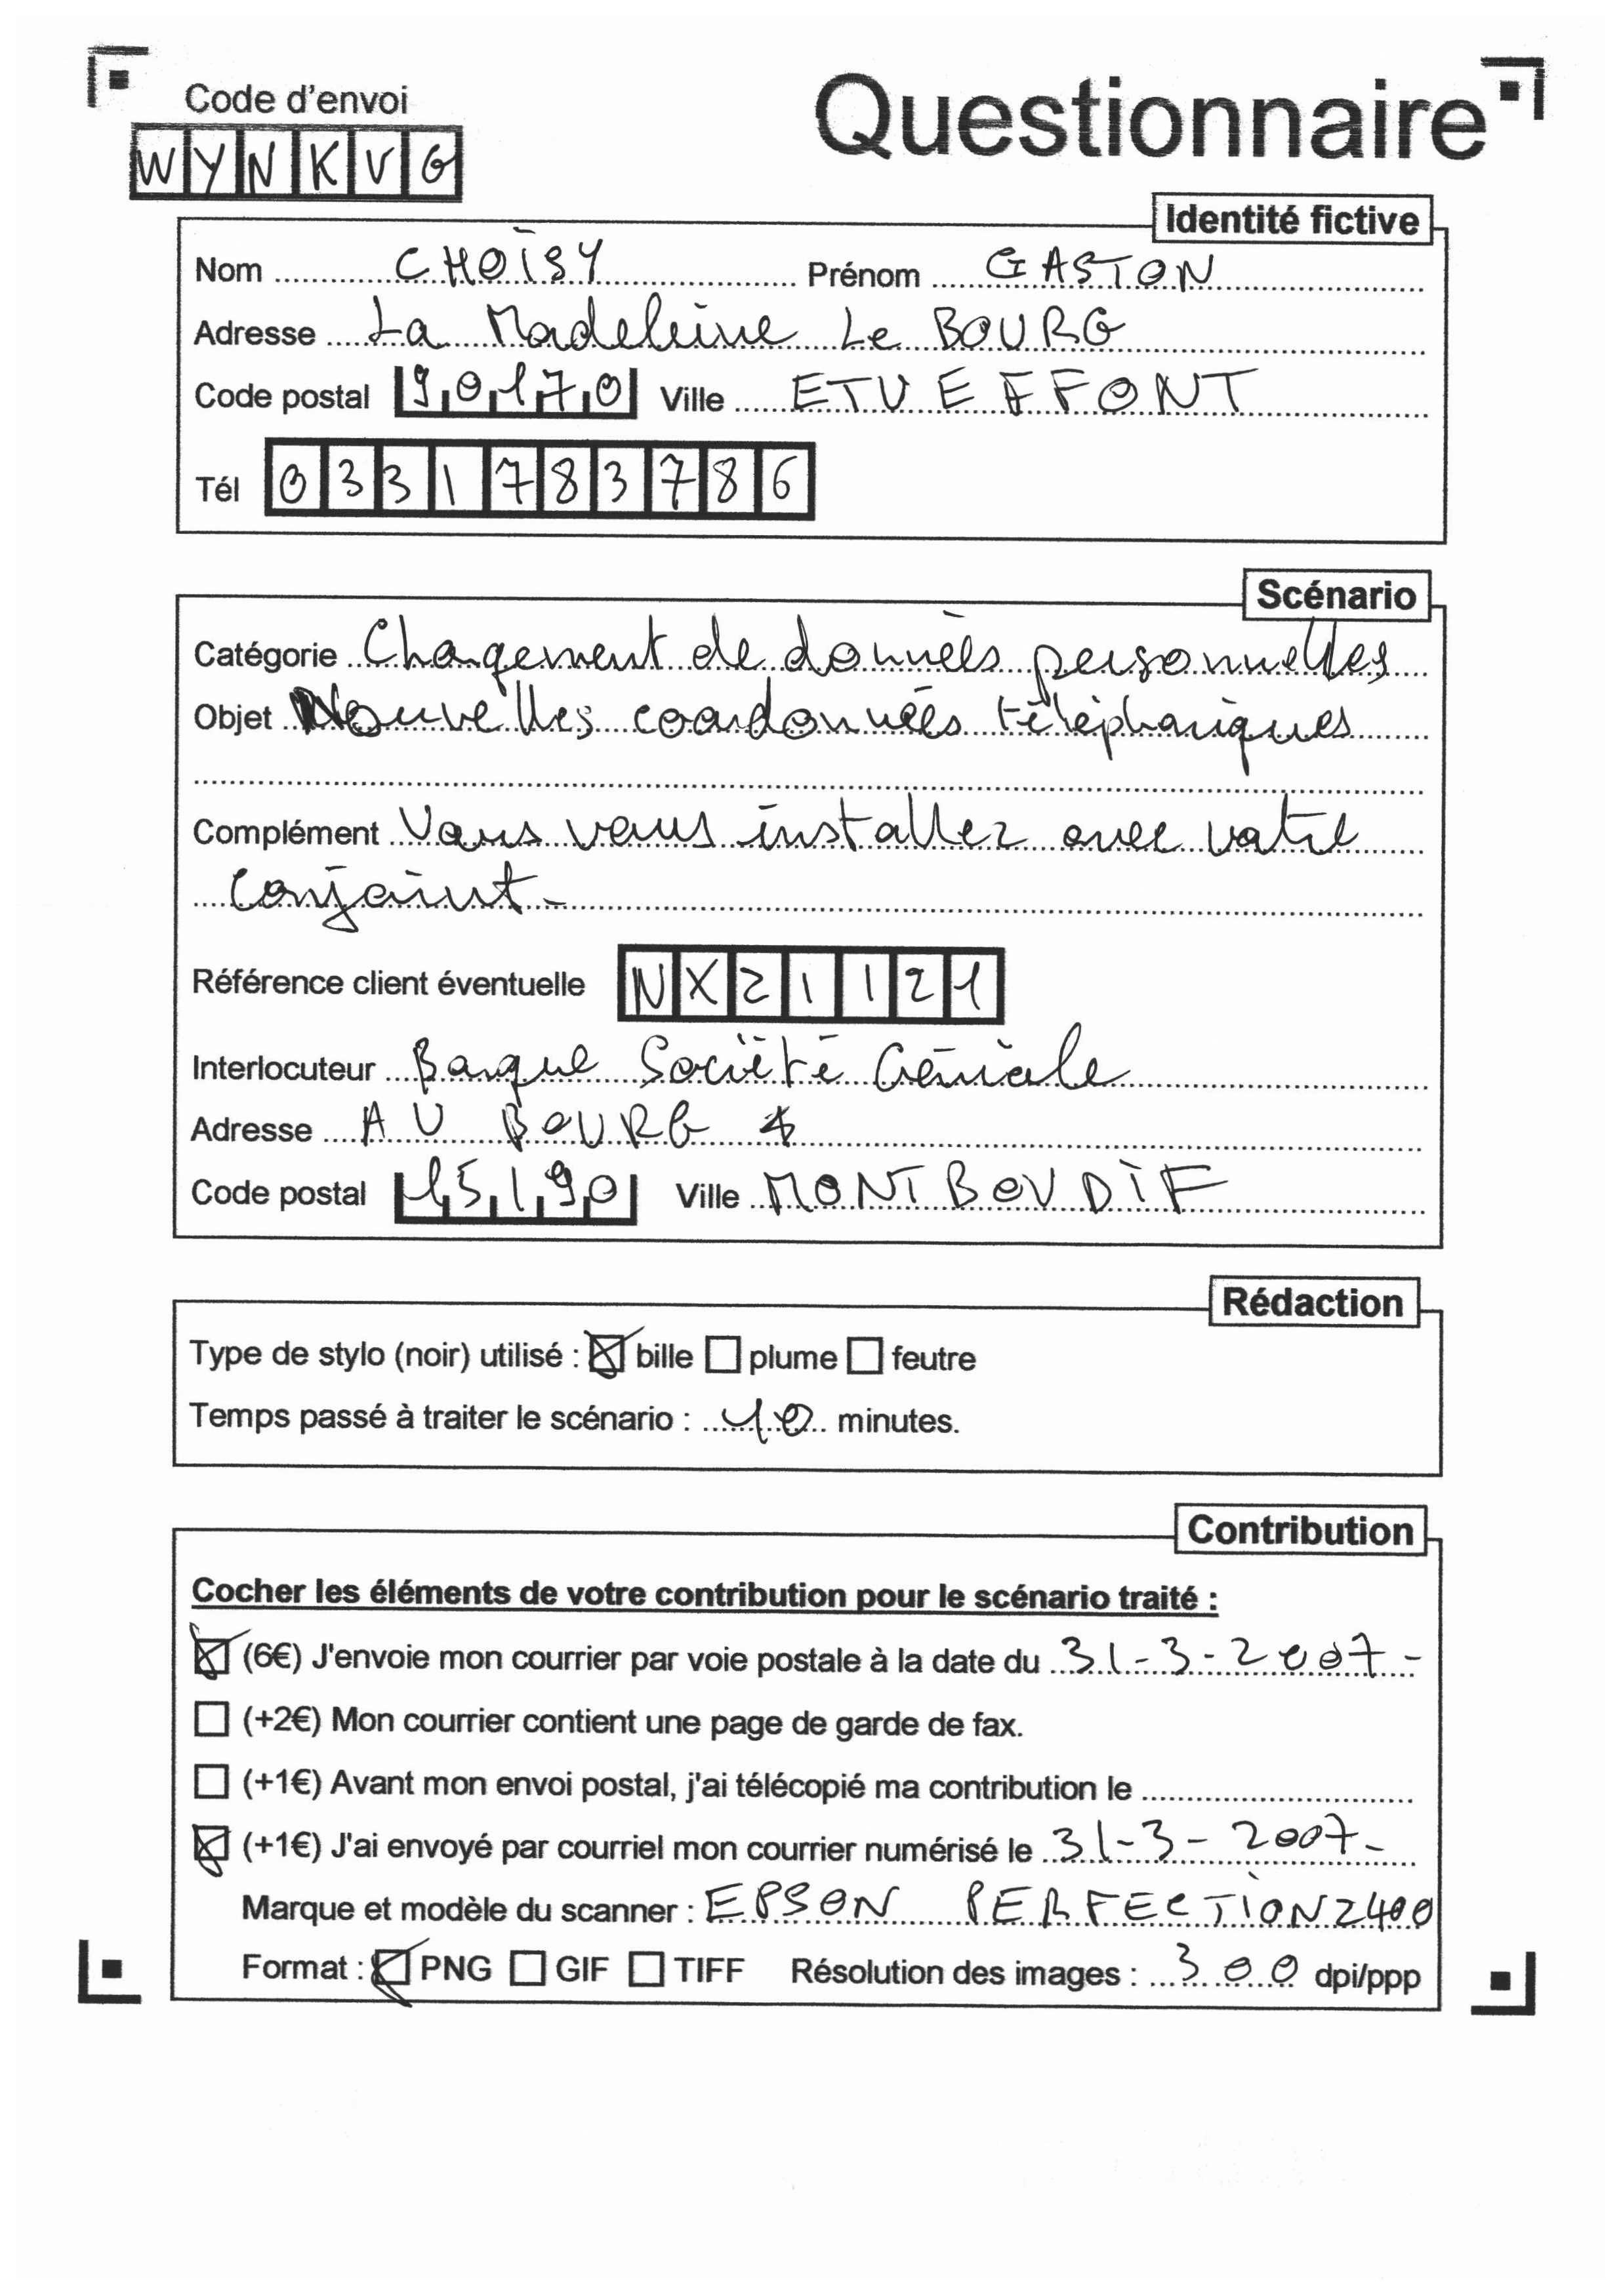 Code d'envoi
Questionnaire
WYNKVG
Identité fictive
Nom CHOISY Prénom GASTON
Adresse La Madeleine Le BOURG
Code postal 90170 Ville ETUEFFONT
Tél 0331783786
Scénario
Catégorie Changement de données personnelles
Objet Nouvelles coordonnées téléphoniques
Complément Vous vous installez avec votre
conjoint.
Référence client éventuelle NX21121
Interlocuteur Banque Société Géniale
Adresse AU BOURG
Code postal 15190 Ville MONTBOUDIF
Rédaction
Type de stylo (noir) utilisé : bille plume feutre
Temps passé à traiter le scénario : 10 minutes.
Contribution
Cocher les éléments de votre contribution pour le scénario traité :
(6€) J'envoie mon courrier par voie postale à la date du 31-3-2007-
(+2€) Mon courrier contient une page de garde de fax.
(+1€) Avant mon envoi postal, j'ai télécopié ma contribution le
(+1€) J'ai envoyé par courriel mon courrier numérisé le 31-3-2007-
Marque et modèle du scanner : EPSON PERFECTION 2400
Format : PNG GIF TIFF Résolution des images : 300 dpi/ppp